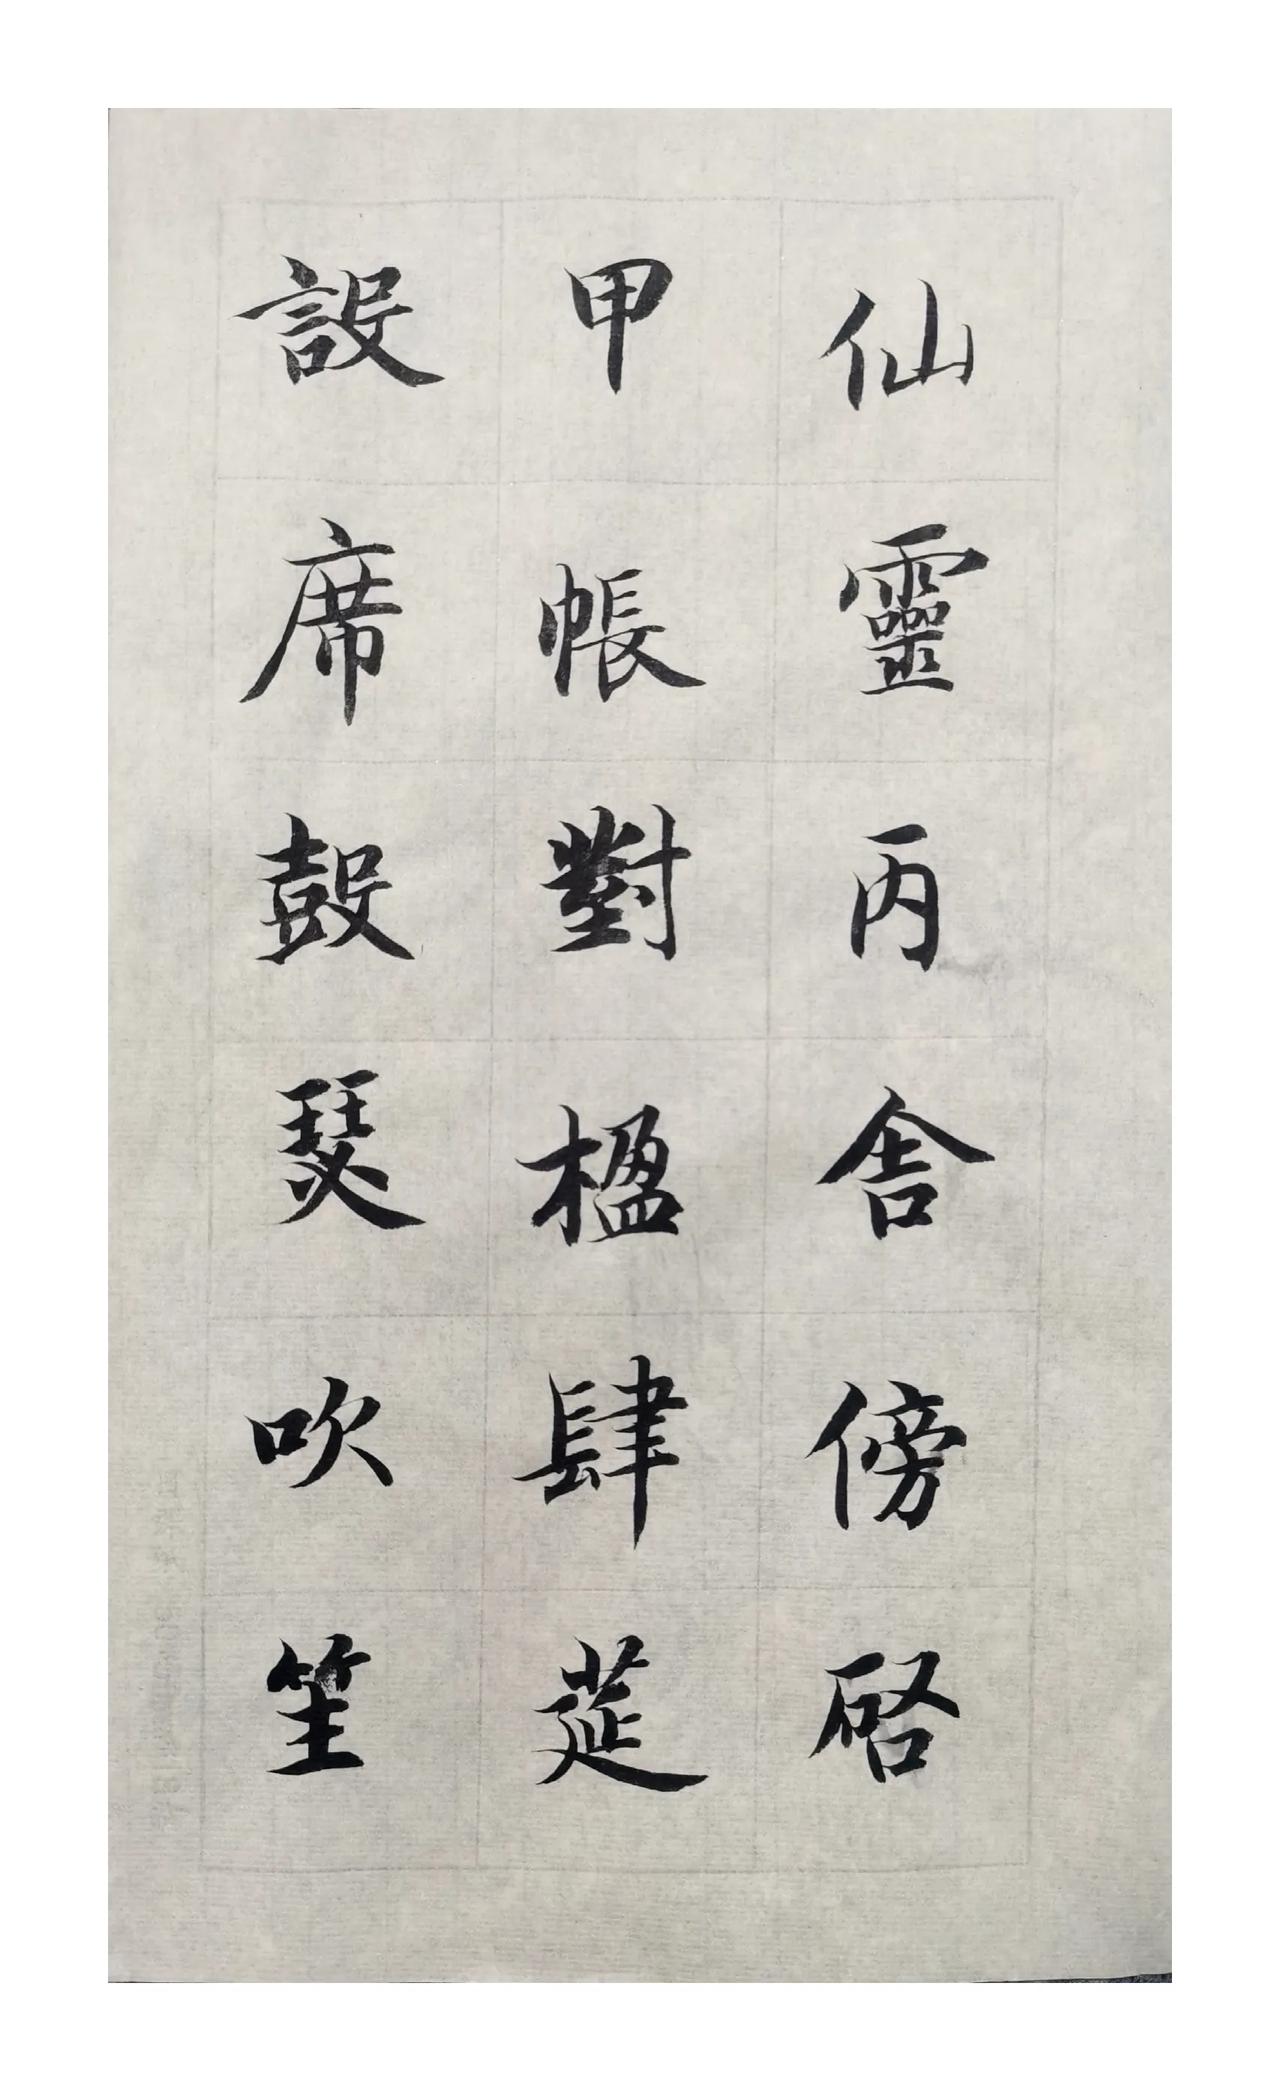 仙靈丙舍傍啓
甲帳對楹肆莚
設席鼓瑟吹笙